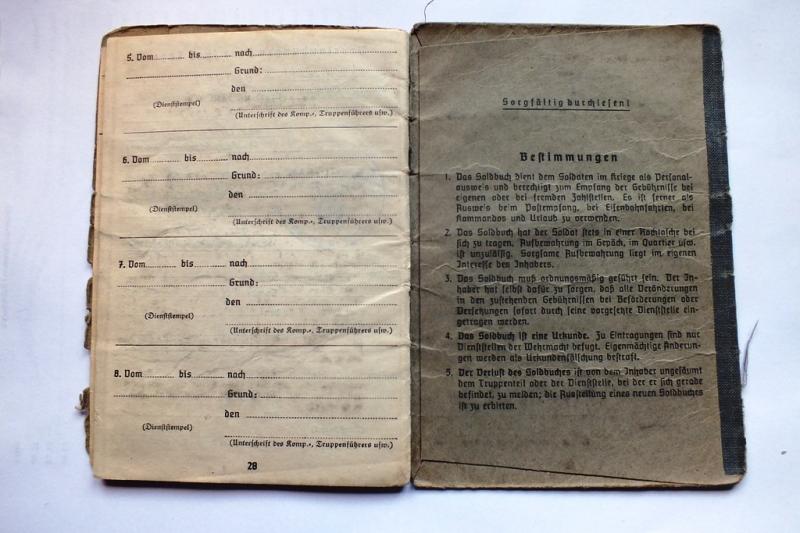 5. Vom bis nach
Grund:
den
(Dienststempel)
(Unterschrift des Komp.-, Truppenführers usw.)
6. Vom bis nach
Grund:
den
(Dienststempel)
(Unterschrift des Komp.-, Truppenführers usw.)
7. Vom bis nach
Grund:
den
(Dienststempel)
(Unterschrift des Komp.-, Truppenführers usw.)
8. Vom bis nach
Grund:
den
(Dienststempel)
(Unterschrift des Komp.-, Truppenführers usw.)
28
Sorgfältig durchlesen!
Bestimmungen
1. Das Soldbuch dient dem Soldaten im Kriege als Personal-
ausweis und berechtigt zum Empfang der Gebührnisse bei
eigenen oder bei fremden Zahlstellen. Es ist ferner als
Ausweis beim Postempfang, bei Eisenbahnfahrten, bei
Kommandos und Urlaub zu verwenden.
2. Das Soldbuch hat der Soldat stets in einer Rocktasche bei
sich zu tragen. Aufbewahrung im Gepäck, im Quartier usw.
ist unzulässig. Sorgsame Aufbewahrung liegt im eigenen
Interesse des Inhabers.
3. Das Soldbuch muß ordnungsmäßig geführt sein. Der In-
haber hat selbst dafür zu sorgen, daß alle Veränderungen
in den zustehenden Gebührnissen bei Beförderungen oder
Versetzungen sofort durch seine vorgesetzte Dienststelle ein-
getragen werden.
4. Das Soldbuch ist eine Urkunde. Zu Eintragungen sind nur
Dienststellen der Wehrmacht befugt. Eigenmächtige Änderun-
gen werden als Urkundenfälschung bestraft.
5. Der Verlust des Soldbuches ist von dem Inhaber ungesäumt
dem Truppenteil oder der Dienststelle, bei der er sich gerade
befindet, zu melden; die Ausstellung eines neuen Soldbuches
ist zu erbitten.